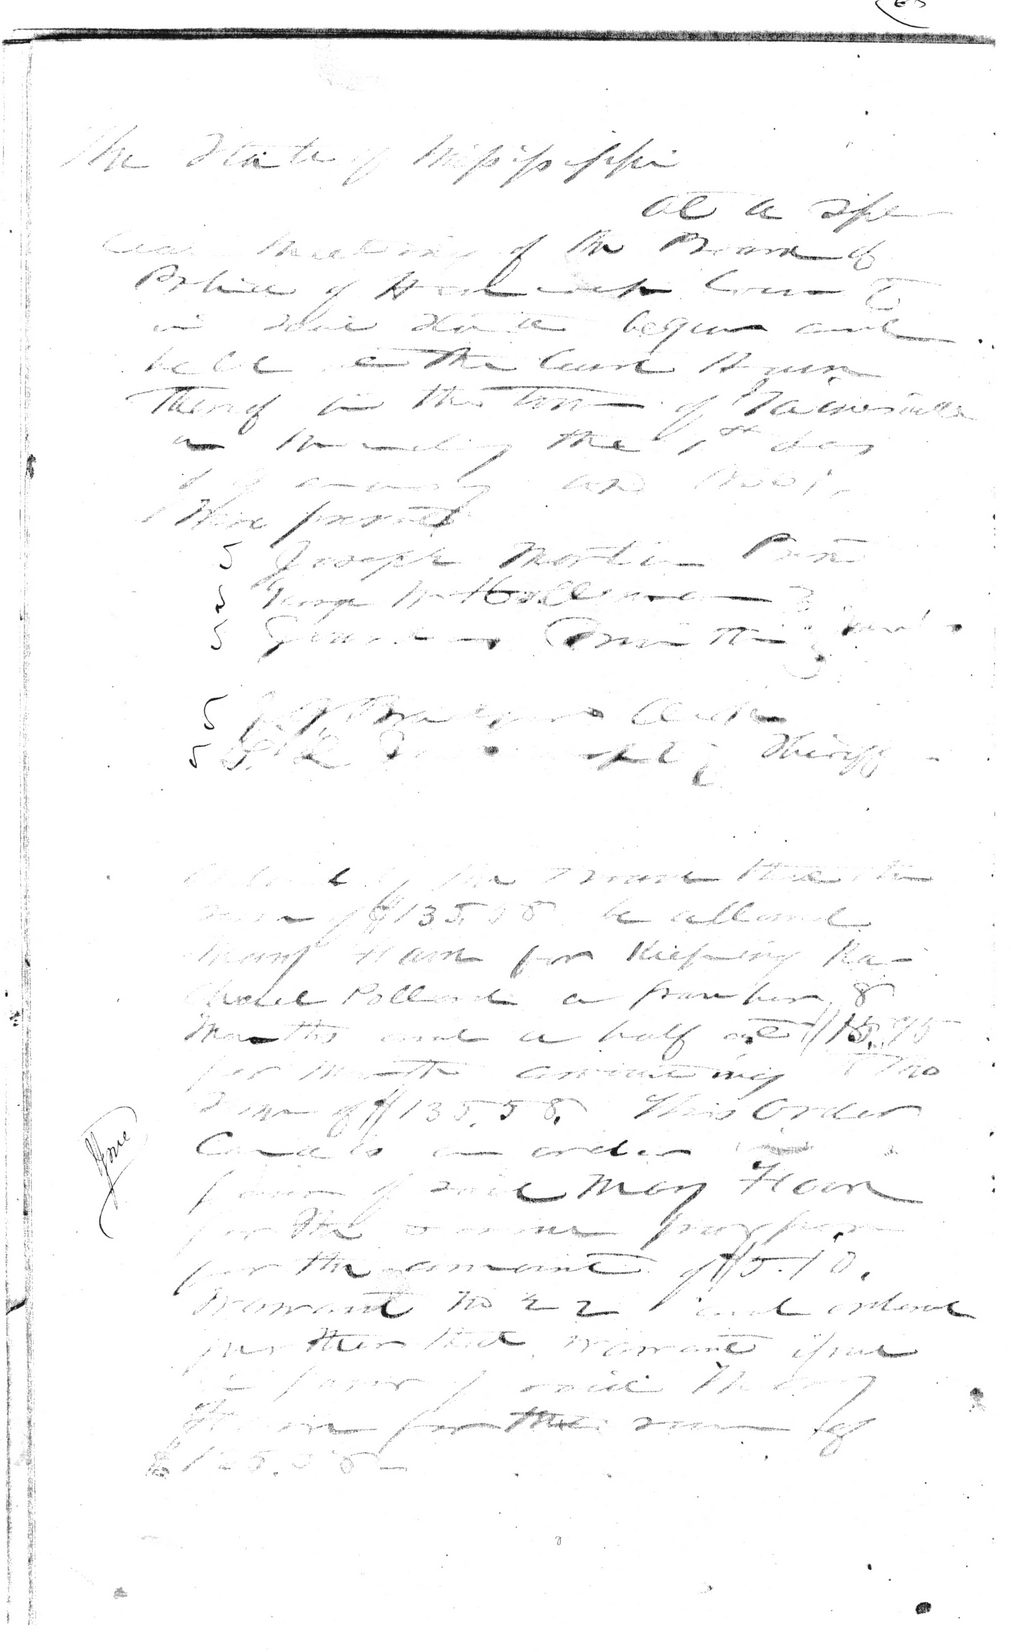 The State of Mississippi
At a Spe
cial Meeting of the Board of
Police of Hancock County
in said State begun and
held at the Court House
thereof in the town of Gainesville
on Monday the 7th day
of January AD
Were present
Joseph Martin Prest
George W Holleman
Smith
Clerk
Sheriff
Ordered by the Board that the
sum of $135.58 be allowed
Mary Ham for keeping Ra
chael Pollard a pauper 8
Months and a half at $15.95
per Month amounting to the
Sum of $135.58. This Order
Cancels an order in
favor of said Mary Ham
for the same purpose
for the amount of $5.10.
Warrant No 22 and ordered
further that warrant issue
in favor of said Mary
Ham for the sum of
$